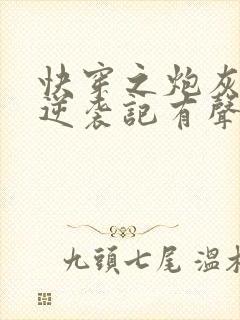 快穿之炮灰
逆袭記有聲
九頭七尾 溫木